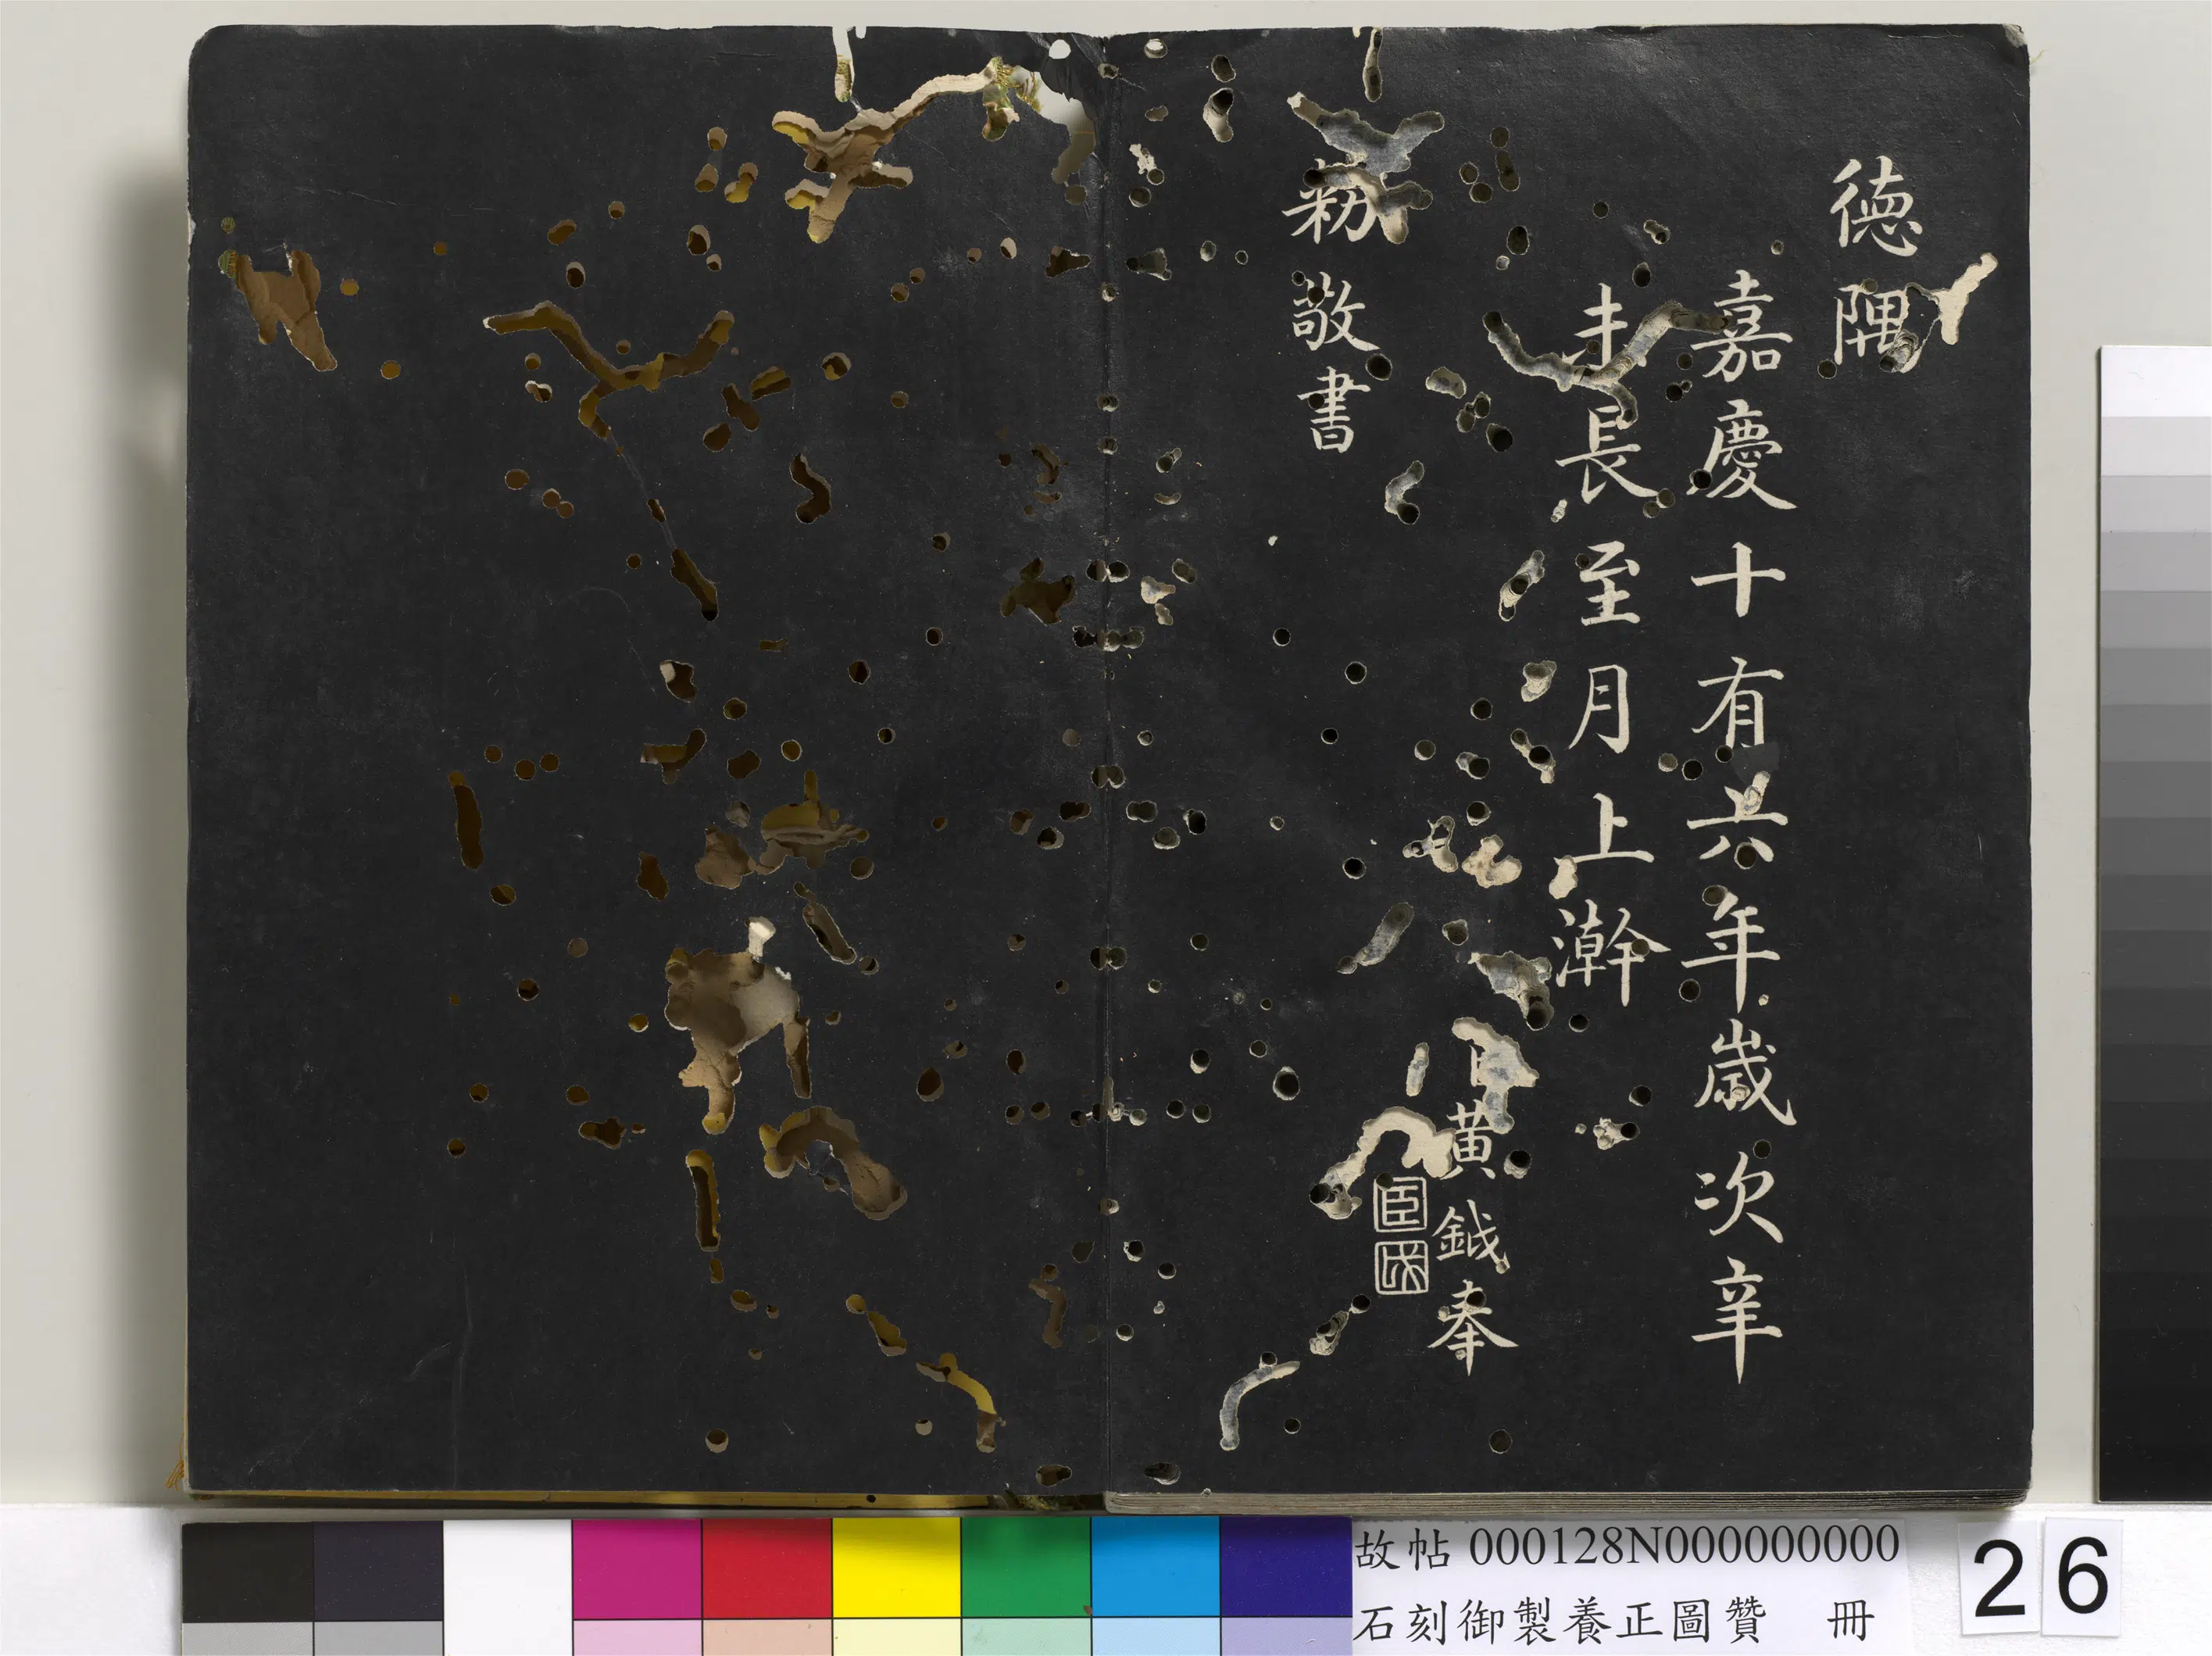 德隅
嘉慶十有六年歲次辛
未長至月上澣
臣黃鉞奉
勑敬書
臣戉
故帖 000128N000000000
石刻御製養正圖贊 冊
26